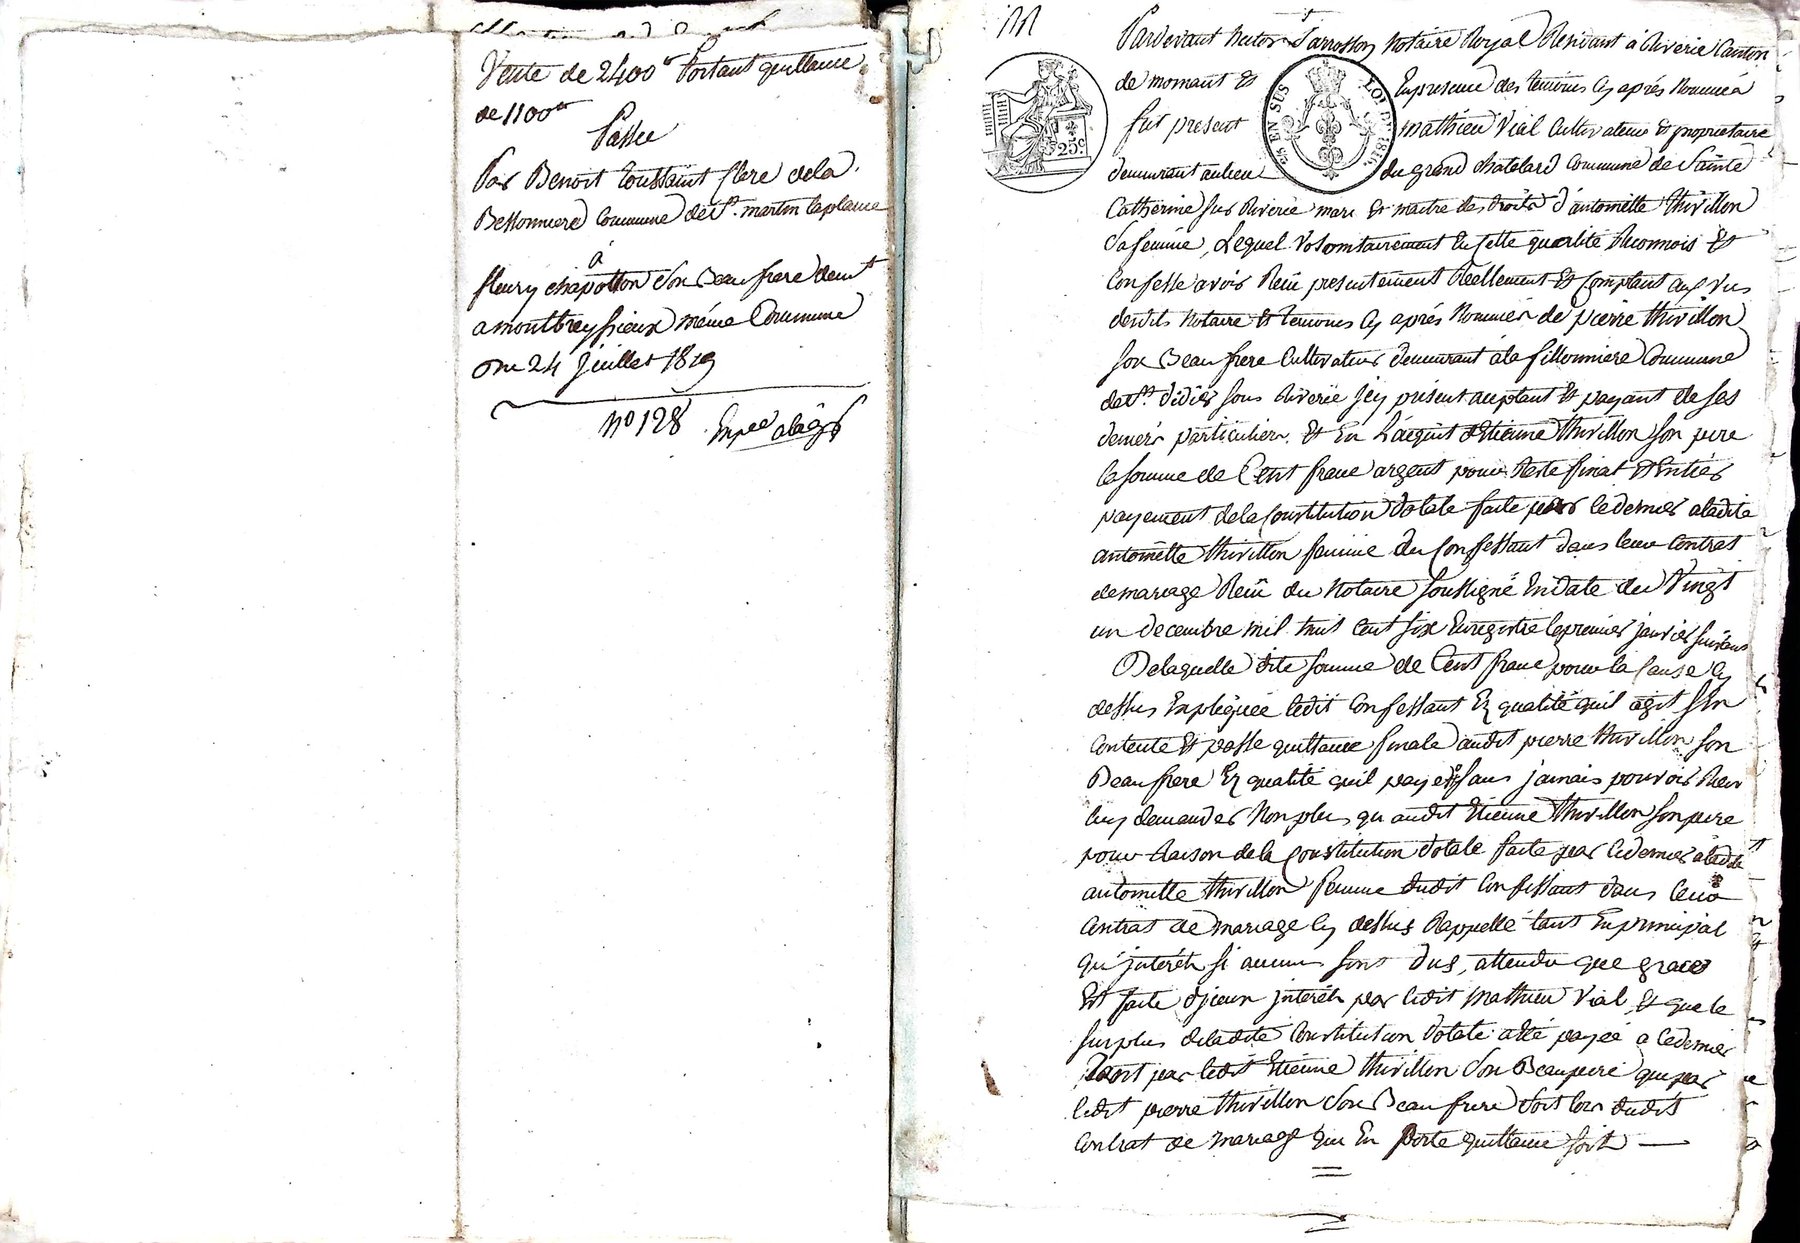 Vente de 2400 fr Portant quittance
de 1100 fr
Passée
Par Benoit Toussaint flere de la
Bessonniere Commune de St. martin la plaine
à
fleury chapotton son Beau frere demt
a montbreyssieux même Commune
Du 24 Juillet 1819
No 128 Exped
Pardevant Nector Jarrosson Notaire Royal Résidant à Riverie Canton
de mornant Et En presence des temoins cy après Nommés
25c.
¼ EN SUS LOI DE 1816.
fut présent mathieu Vial Cultivateur Et proprietaire
demeurant au lieu du grand chatelard Commune de Sainte
Catherine sur Riverie mari Et maitre des Droits d'antoinette thivillon
Sa femme, Lequel Volontairement En Cette qualité Reconnois Et
Confesse avoir Reçu presentement Réellement Et Comptant aux vus
desdits Notaire Et temoins cy après Nommés de pierre thivillon
son Beau frere Cultivateur demeurant à la fillonniere Commune
de St. Didier sous Riverie Icy présent acceptant Et payant de ses
deniers particuliers Et En L'acquit d'Etienne thivillon son pere
la somme de Cent franc argent pour Reste final Et Entier
payement de la Constitution Dotale faite par ce dernier a ladite
antoinette thivillon femme du Confessant dans leur Contrat
de mariage Reçu du Notaire soussigné En Date du Vingt
un decembre mil huit Cent six Enregistré le premier janvier suivant
De laquelle dite somme de Cent franc pour la Cause cy
dessus Expliquée ledit Confessant En qualité qu'il agit s'En
Contente Et passe quittance finale audit pierre thivillon son
Beau frere En qualité qu'il paye Et sans jamais pouvoir Rien
luy demander Non plus qu'audit Etienne thivillon son pere
pour Raison de la Constitution Dotale faite par ce dernier a ladte
antoinette thivillon femme dudit Confessant dans leur
Contrat de mariage cy dessus Rappellé tant En principal
qu'intérêts si aucuns sont Dus, attendu que grace
Est faite d'iceux intérêts par ledit Mathieu Vial, Et que le
surplus de ladite Constitution Dotale a été payée a ce dernier
Tant par ledit Etienne thivillon son Beau pere que par
ledit pierre thivillon son Beau frere soit lors dudit
Contrat de mariage qui En Porte quittance soit